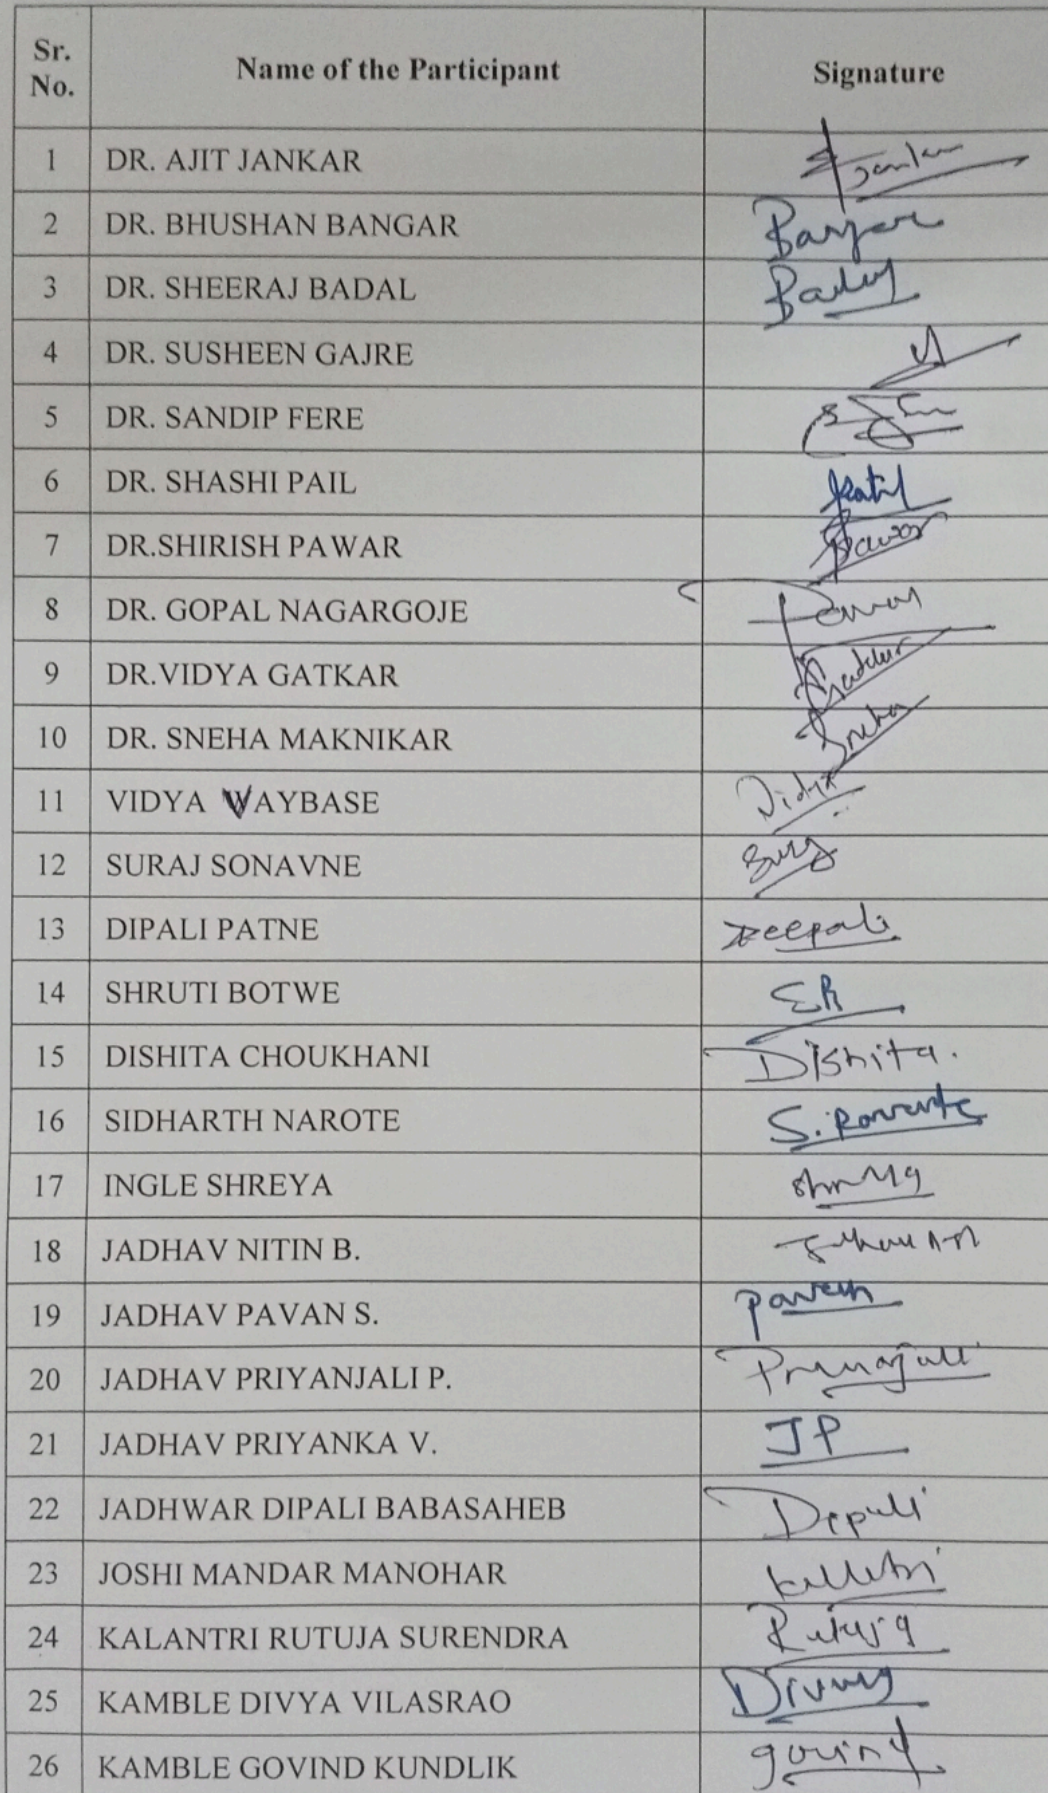 Sr. No. Name of the Participant Signature
1 DR. AJIT JANKAR Jankar
2 DR. BHUSHAN BANGAR Bangar
3 DR. SHEERAJ BADAL
4 DR. SUSHEEN GAJRE
5 DR. SANDIP FERE
6 DR. SHASHI PAIL Patil
7 DR.SHIRISH PAWAR Pawar
8 DR. GOPAL NAGARGOJE
9 DR.VIDYA GATKAR
10 DR. SNEHA MAKNIKAR Sneha
11 VIDYA WAYBASE Vidya
12 SURAJ SONAVNE
13 DIPALI PATNE Deepali
14 SHRUTI BOTWE
15 DISHITA CHOUKHANI Dishita.
16 SIDHARTH NAROTE
17 INGLE SHREYA
18 JADHAV NITIN B.
19 JADHAV PAVAN S.
20 JADHAV PRIYANJALI P.
21 JADHAV PRIYANKA V. JP
22 JADHWAR DIPALI BABASAHEB Dipali
23 JOSHI MANDAR MANOHAR
24 KALANTRI RUTUJA SURENDRA Rutuja
25 KAMBLE DIVYA VILASRAO
26 KAMBLE GOVIND KUNDLIK govind